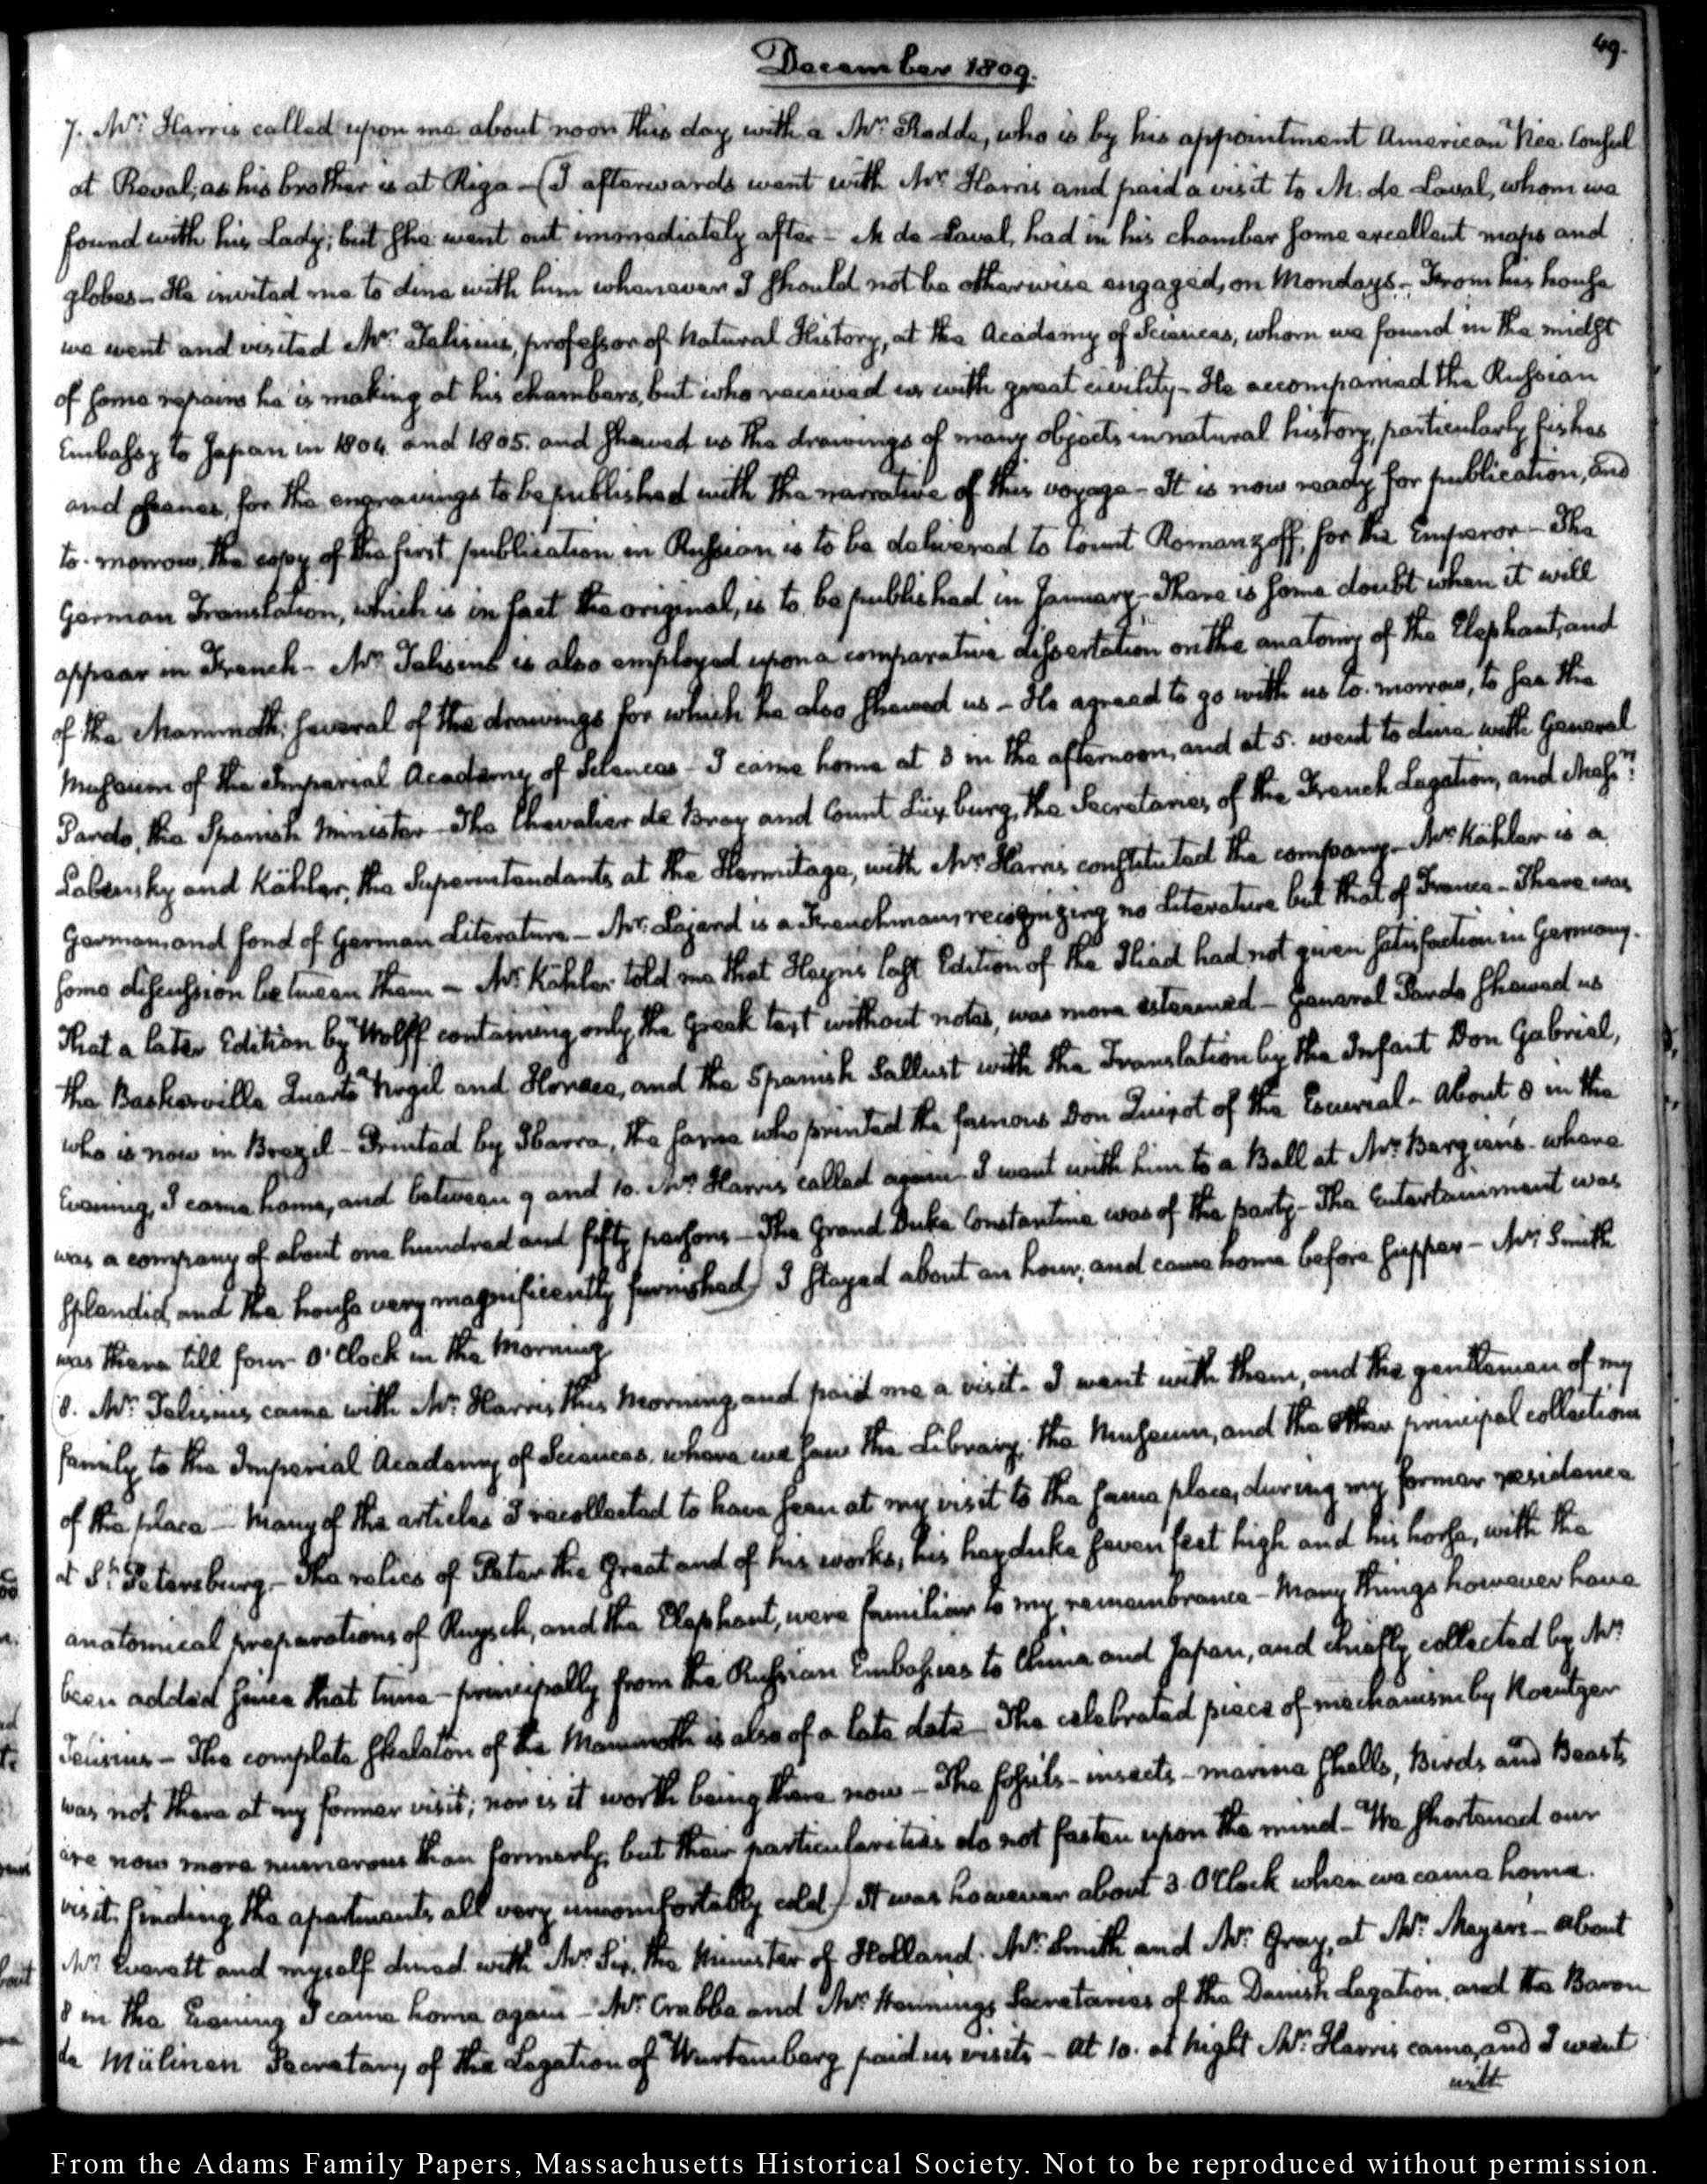 49.
December 1809.
7. Mr: Harris called upon me about noon this day, with a Mr: Rodde, who is by his appointment American Vice Consul
at Reval, as his brother is at Riga — (I afterwards went with Mr: Harris and paid a visit to M. de Laval, whom we
found with his Lady; but she went out immediately after — M de Laval, had in his chamber some excellent maps and
globes — He invited me to dine with him whenever I should not be otherwise engaged, on Mondays — From his house
we went and visited Mr: Telisius, professor of Natural History, at the Academy of Sciences, whom we found in the midst
of some repairs he is making at his chambers, but who received us with great civility — He accompanied the Russian
Embassy to Japan in 1804 and 1805. and shewed us the drawings of many objects in natural history, particularly fishes
and scenes, for the engravings to be published with the narrative of this voyage — It is now ready for publication, and
to-morrow, the copy of the first publication in Russian is to be delivered to Count Romanzoff, for the Emperor — The
German Translation, which is in fact the original, is to be published in January — There is some doubt when it will
appear in French — Mr: Telisius is also employed upon a comparative dissertation on the anatomy of the Elephant, and
of the Mammoth; several of the drawings for which he also shewed us — He agreed to go with us to-morrow, to see the
Museum of the Imperial Academy of Sciences — I came home at 3 in the afternoon, and at 5. went to dine with General
Pardo, the Spanish Minister — The Chevalier de Bray and Count Luxburg, the Secretaries of the French Legation, and Messrs:
Labensky and Köhler, the Superintendants at the Hermitage, with Mr: Harris constituted the company — Mr: Köhler is a
German, and fond of German Literature — Mr: Lajard is a Frenchman, recognizing no Literature but that of France — There was
some discussion between them — Mr: Köhler told me that Heyne's last Edition of the Iliad had not given satisfaction in Germany.
That a later Edition by Wolff containing only the Greek text without notes, was more esteemed — General Pardo shewed us
the Baskerville Quarto Virgil and Horace, and the Spanish Sallust with the Translation by the Infant Don Gabriel,
who is now in Brazil — Printed by Ibarra, the same who printed the famous Don Quixot of the Escurial — About 8 in the
Evening, I came home, and between 9 and 10. Mr: Harris called again — I went with him to a Ball at Mr: Bergien's — where
was a company of about one hundred and fifty persons — The Grand Duke Constantine was of the party — The Entertainment was
splendid, and the house very magnificently furnished) I stayed about an hour; and came home before supper — Mr: Smith
was there till four O'Clock in the Morning.
(8. Mr: Telisius came with Mr: Harris this Morning, and paid me a visit — I went with them, and the gentlemen of my
family to the Imperial Academy of Sciences. where we saw the Library, the Museum, and the other principal collections
of the place — Many of the articles I recollected to have seen at my visit to the same place, during my former residence
at St: Petersburg — The relics of Peter the Great and of his works, his hayduke seven feet high and his horse, with the
anatomical preparations of Ruysch, and the Elephant, were familiar to my remembrance — Many things however have
been added since that time — principally from the Russian Embassies to China and Japan, and chiefly collected by Mr:
Telisius — The complete skeleton of the Mammoth is also of a late date — The celebrated piece of mechanism by Roentgen
was not there at my former visit; nor is it worth being there now — The fossils — insects — marine shells, Birds and Beasts
are now more numerous than formerly, but their particularities do not fasten upon the mind — We shortened our
visit, finding the apartments all very uncomfortably cold) It was however about 3 O'Clock when we came home.
Mr: Everett and myself dined with Mr: Six, the Minister of Holland. Mr: Smith and Mr: Gray, at Mr: Meyer's — About
8 in the Evening I came home again — Mr: Crabbe and Mr: Hennings Secretaries of the Danish Legation, and the Baron
de Mülinen Secretary of the Legation of Wurtemberg paid us visits — At 10. at Night Mr: Harris came, and I went
with
From the Adams Family Papers, Massachusetts Historical Society. Not to be reproduced without permission.